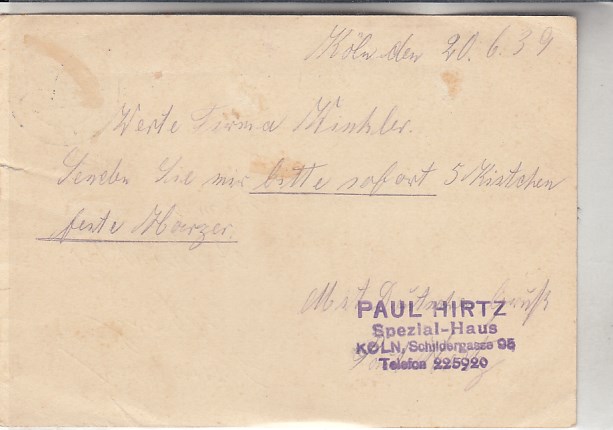 Köln den 20.6.39
Werte Firma Winkler.
Senden Sie mir bitte sofort 5 Kistchen
feste Harzer.
Mit Deutschem Gruß
PAUL HIRTZ
Spezial-Haus
KÖLN, Schildergasse 95
Telefon 225920